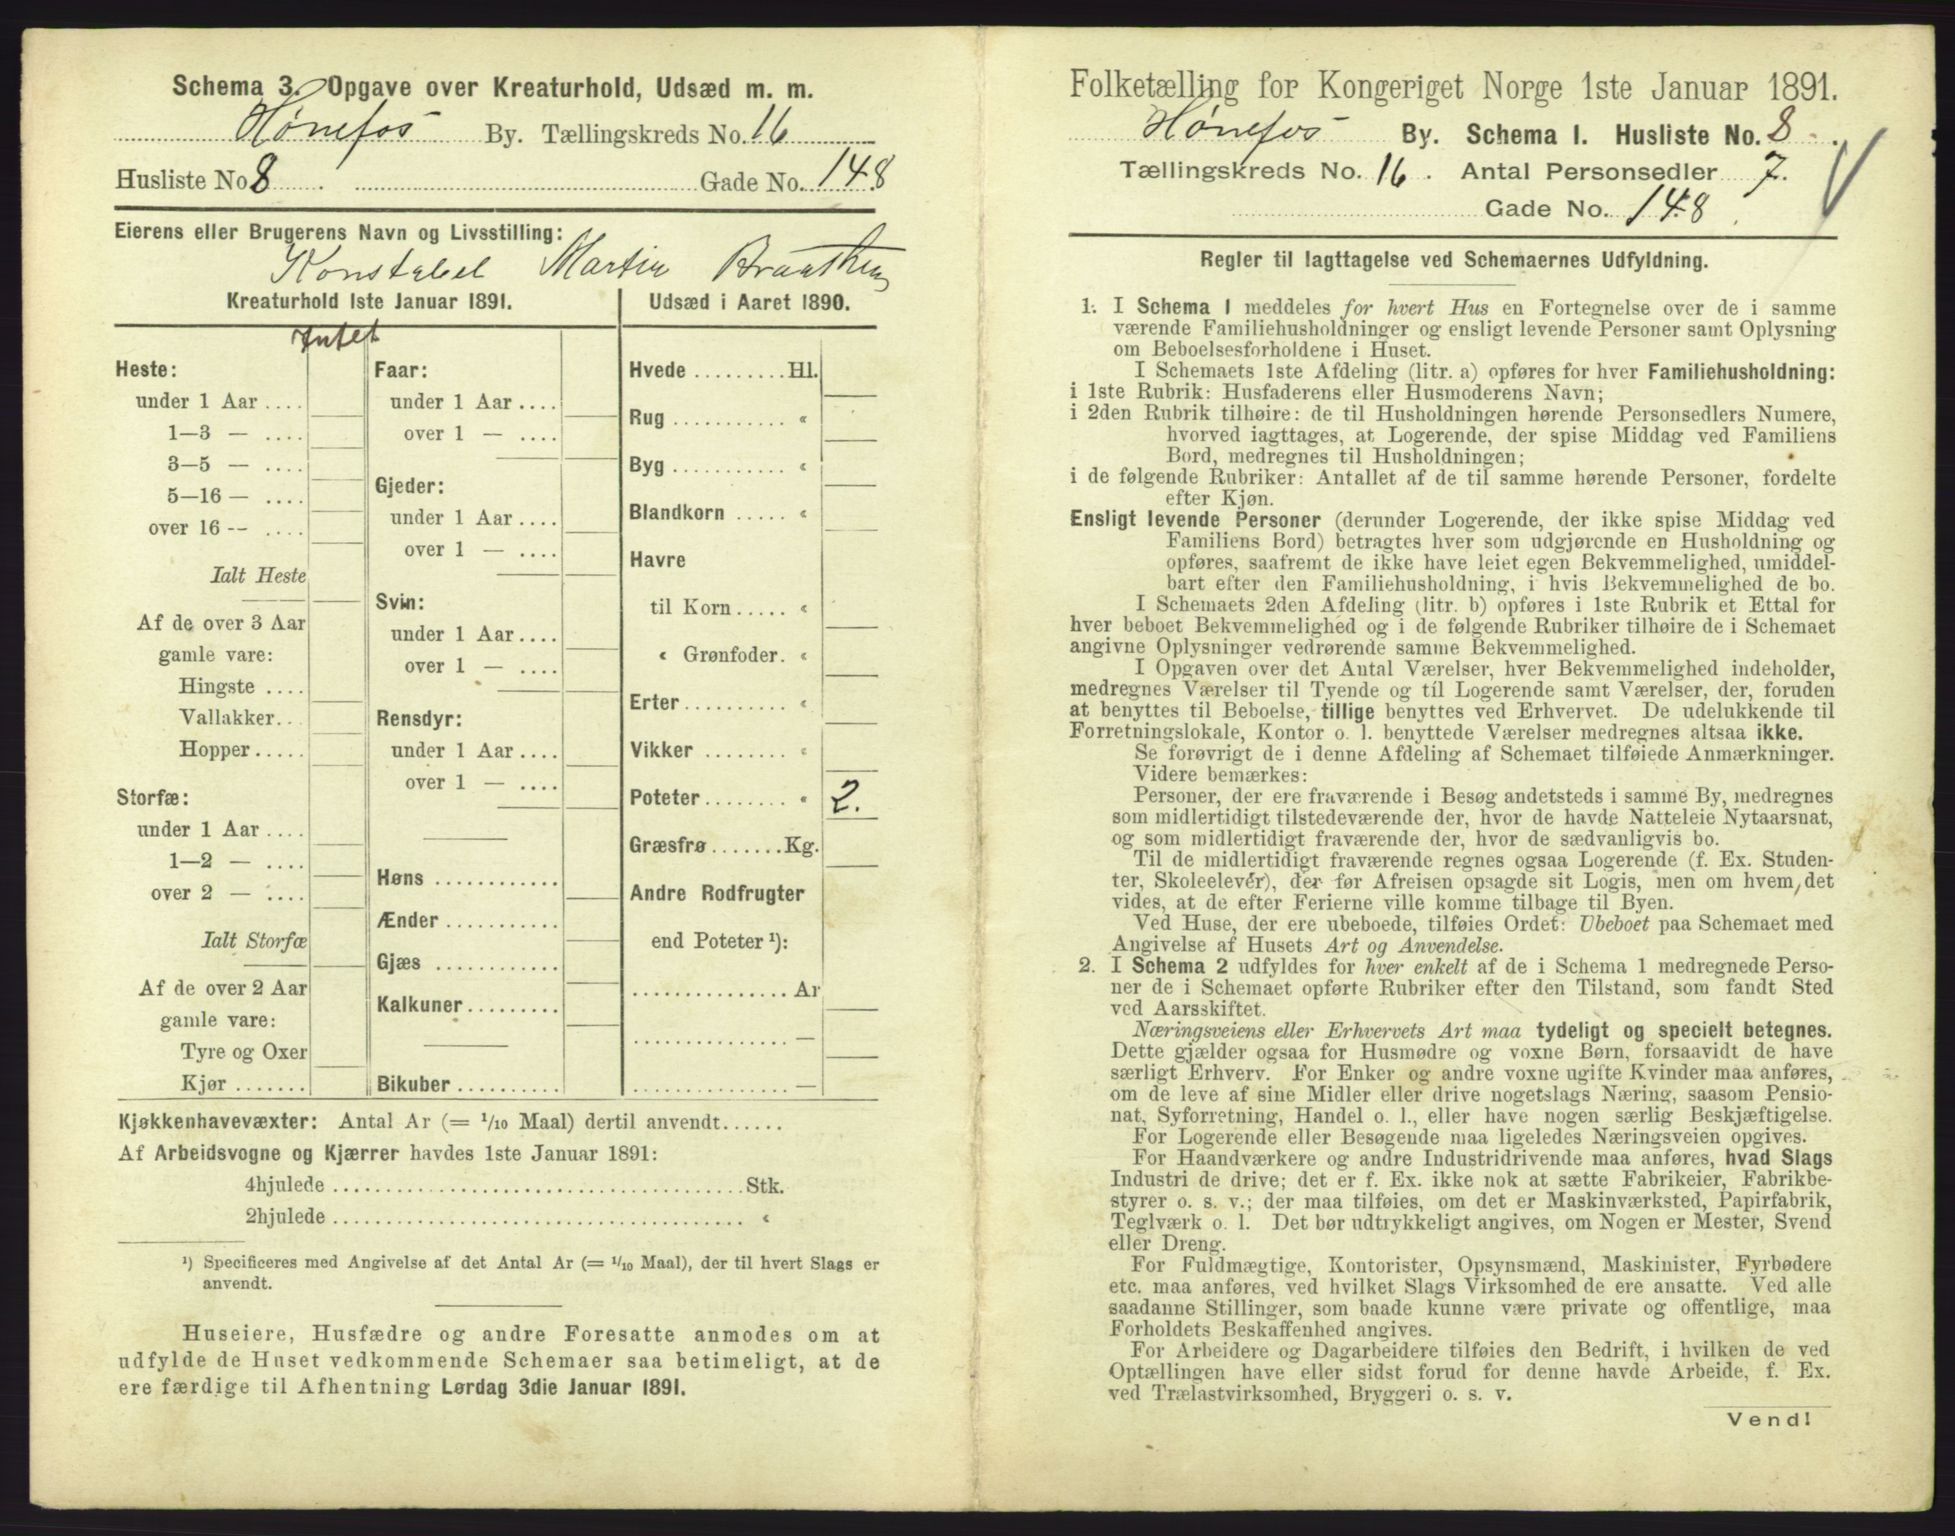 Schema 3. Opgave over Kreaturhold, Udsæd m. m.
Hønefos By. Tællingskreds No. 16
Husliste No. 8 . Gade No. 148
Eierens eller Brugerens Navn og Livsstilling:
Konstabel Martin Braathen
Kreaturhold 1ste Januar 1891.
Intet
Heste:
under 1 Aar ....
1—3 — ....
3—5 — ....
5—16 — ....
over 16 — ....
Ialt Heste
Af de over 3 Aar
gamle vare:
Hingste ....
Vallakker...
Hopper.....
Storfæ:
under 1 Aar ....
1—2 — ....
over 2 — ....
Ialt Storfæ
Af de over 2 Aar
gamle vare:
Tyre og Oxer
Kjør .......
Faar:
under 1 Aar ....
over 1 — ....
Gjeder:
under 1 Aar ....
over 1 — ....
Svin:
under 1 Aar ....
over 1 — ....
Rensdyr:
under 1 Aar ....
over 1 — ....
Høns ............
Ænder ...........
Gjæs ............
Kalkuner.........
Bikuber ..........
Udsæd i Aaret 1890.
Hvede .........Hl.
Rug ........... «
Byg ........... «
Blandkorn ..... «
Havre
til Korn..... «
« Grønfoder. «
Erter.......... «
Vikker ........ «
Poteter........ « 2.
Græsfrø.......Kg.
Andre Rodfrugter
end Poteter ¹):
............... Ar
............... —
............... —
Kjøkkenhavevæxter: Antal Ar (= 1/10 Maal) dertil anvendt......
Af Arbeidsvogne og Kjærrer havdes 1ste Januar 1891:
4hjulede ........................................Stk.
2hjulede ........................................ «
¹) Specificeres med Angivelse af det Antal Ar (= 1/10 Maal), der til hvert Slags er
anvendt.
Huseiere, Husfædre og andre Foresatte anmodes om at
udfylde de Huset vedkommende Schemaer saa betimeligt, at de
ere færdige til Afhentning Lørdag 3die Januar 1891.
Folketælling for Kongeriget Norge 1ste Januar 1891.
Hønefos By. Schema I. Husliste No. 8.
Tællingskreds No. 16 . Antal Personsedler 7.
Gade No. 148 .
Regler til Iagttagelse ved Schemaernes Udfyldning.
1. I Schema I meddeles for hvert Hus en Fortegnelse over de i samme
værende Familiehusholdninger og ensligt levende Personer samt Oplysning
om Beboelsesforholdene i Huset.
I Schemaets 1ste Afdeling (litr. a) opføres for hver Familiehusholdning:
i 1ste Rubrik: Husfaderens eller Husmoderens Navn;
i 2den Rubrik tilhøire: de til Husholdningen hørende Personsedlers Numere,
hvorved iagttages, at Logerende, der spise Middag ved Familiens
Bord, medregnes til Husholdningen;
i de følgende Rubriker: Antallet af de til samme hørende Personer, fordelte
efter Kjøn.
Ensligt levende Personer (derunder Logerende, der ikke spise Middag ved
Familiens Bord) betragtes hver som udgjørende en Husholdning og
opføres, saafremt de ikke have leiet egen Bekvemmelighed, umiddel-
bart efter den Familiehusholdning, i hvis Bekvemmelighed de bo.
I Schemaets 2den Afdeling (litr. b) opføres i 1ste Rubrik et Ettal for
hver beboet Bekvemmelighed og i de følgende Rubriker tilhøire de i Schemaet
angivne Oplysninger vedrørende samme Bekvemmelighed.
I Opgaven over det Antal Værelser, hver Bekvemmelighed indeholder,
medregnes Værelser til Tyende og til Logerende samt Værelser, der, foruden
at benyttes til Beboelse, tillige benyttes ved Erhvervet. De udelukkende til
Forretningslokale, Kontor o. l. benyttede Værelser medregnes altsaa ikke.
Se forøvrigt de i denne Afdeling af Schemaet tilføiede Anmærkninger.
Videre bemærkes:
Personer, der ere fraværende i Besøg andetsteds i samme By, medregnes
som midlertidigt tilstedeværende der, hvor de havde Natteleie Nytaarsnat,
og som midlertidigt fraværende der, hvor de sædvanligvis bo.
Til de midlertidigt fraværende regnes ogsaa Logerende (f. Ex. Studen-
ter, Skoleelever), der før Afreisen opsagde sit Logis, men om hvem det
vides, at de efter Ferierne ville komme tilbage til Byen.
Ved Huse, der ere ubeboede, tilføies Ordet: Ubeboet paa Schemaet med
Angivelse af Husets Art og Anvendelse.
2. I Schema 2 udfyldes for hver enkelt af de i Schema 1 medregnede Perso-
ner de i Schemaet opførte Rubriker efter den Tilstand, som fandt Sted
ved Aarsskiftet.
Næringsveiens eller Erhvervets Art maa tydeligt og specielt betegnes.
Dette gjælder ogsaa for Husmødre og voxne Børn, forsaavidt de have
særligt Erhverv. For Enker og andre voxne ugifte Kvinder maa anføres,
om de leve af sine Midler eller drive nogetslags Næring, saasom Pensio-
nat, Syforretning, Handel o. l., eller have nogen særlig Beskjæftigelse.
For Logerende eller Besøgende maa ligeledes Næringsveien opgives.
For Haandværkere og andre Industridrivende maa anføres, hvad Slags
Industri de drive; det er f. Ex. ikke nok at sætte Fabrikeier, Fabrikbe-
styrer o. s. v.; der maa tilføies, om det er Maskinværksted, Papirfabrik,
Teglværk o. l. Det bør udtrykkeligt angives, om Nogen er Mester, Svend
eller Dreng.
For Fuldmægtige, Kontorister, Opsynsmænd, Maskinister, Fyrbødere
etc. maa anføres, ved hvilket Slags Virksomhed de ere ansatte. Ved alle
saadanne Stillinger, som baade kunne være private og offentlige, maa
Forholdets Beskaffenhed angives.
For Arbeidere og Dagarbeidere tilføies den Bedrift, i hvilken de ved
Optællingen have eller sidst forud for denne havde Arbeide, f. Ex.
ved Trælastvirksomhed, Bryggeri o. s. v.
Vend!